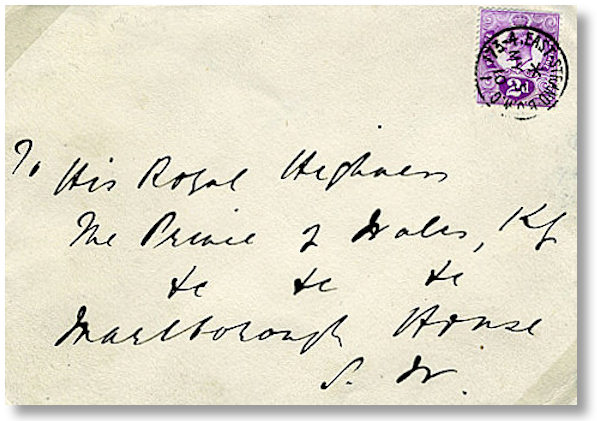 To His Royal Highness
The Prince of Wales, KG
&c &c &c
Marlborough House
S. W.
2d
EAST STRAND